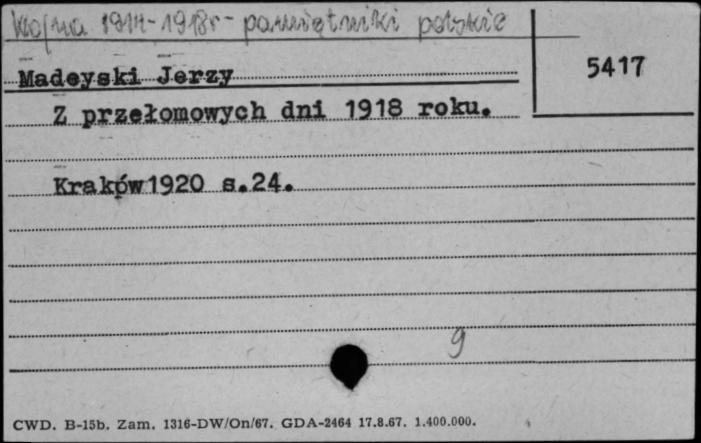 Wojna 1914-1918r - pamiętniki polskie
5417
Madeyski Jerzy
Z przełomowych dni 1918 roku.
Kraków 1920 s.24.
9
CWD. B-15b. Zam. 1316-DW/On/67. GDA-2464 17.8.67. 1.400.000.